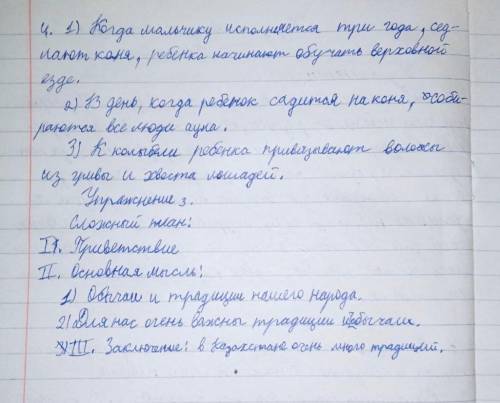 4. 1) Когда мальчику исполняется три года, сед-
лают коня, ребенка начинают обучать верховной
езде.
2) В день, когда ребенок садится на коня, соби-
раются все люди аула.
3) К колыбели ребенка привязывают волосы
из гривы и хвоста лошадей.
Упражнение 3.
Сложный план:
I. Приветствие
II. Основная мысль:
1) Обычаи и традиции нашего народа.
2) Для нас очень важны традиции и обычаи.
III. Заключение: в Казахстане очень много традиций.